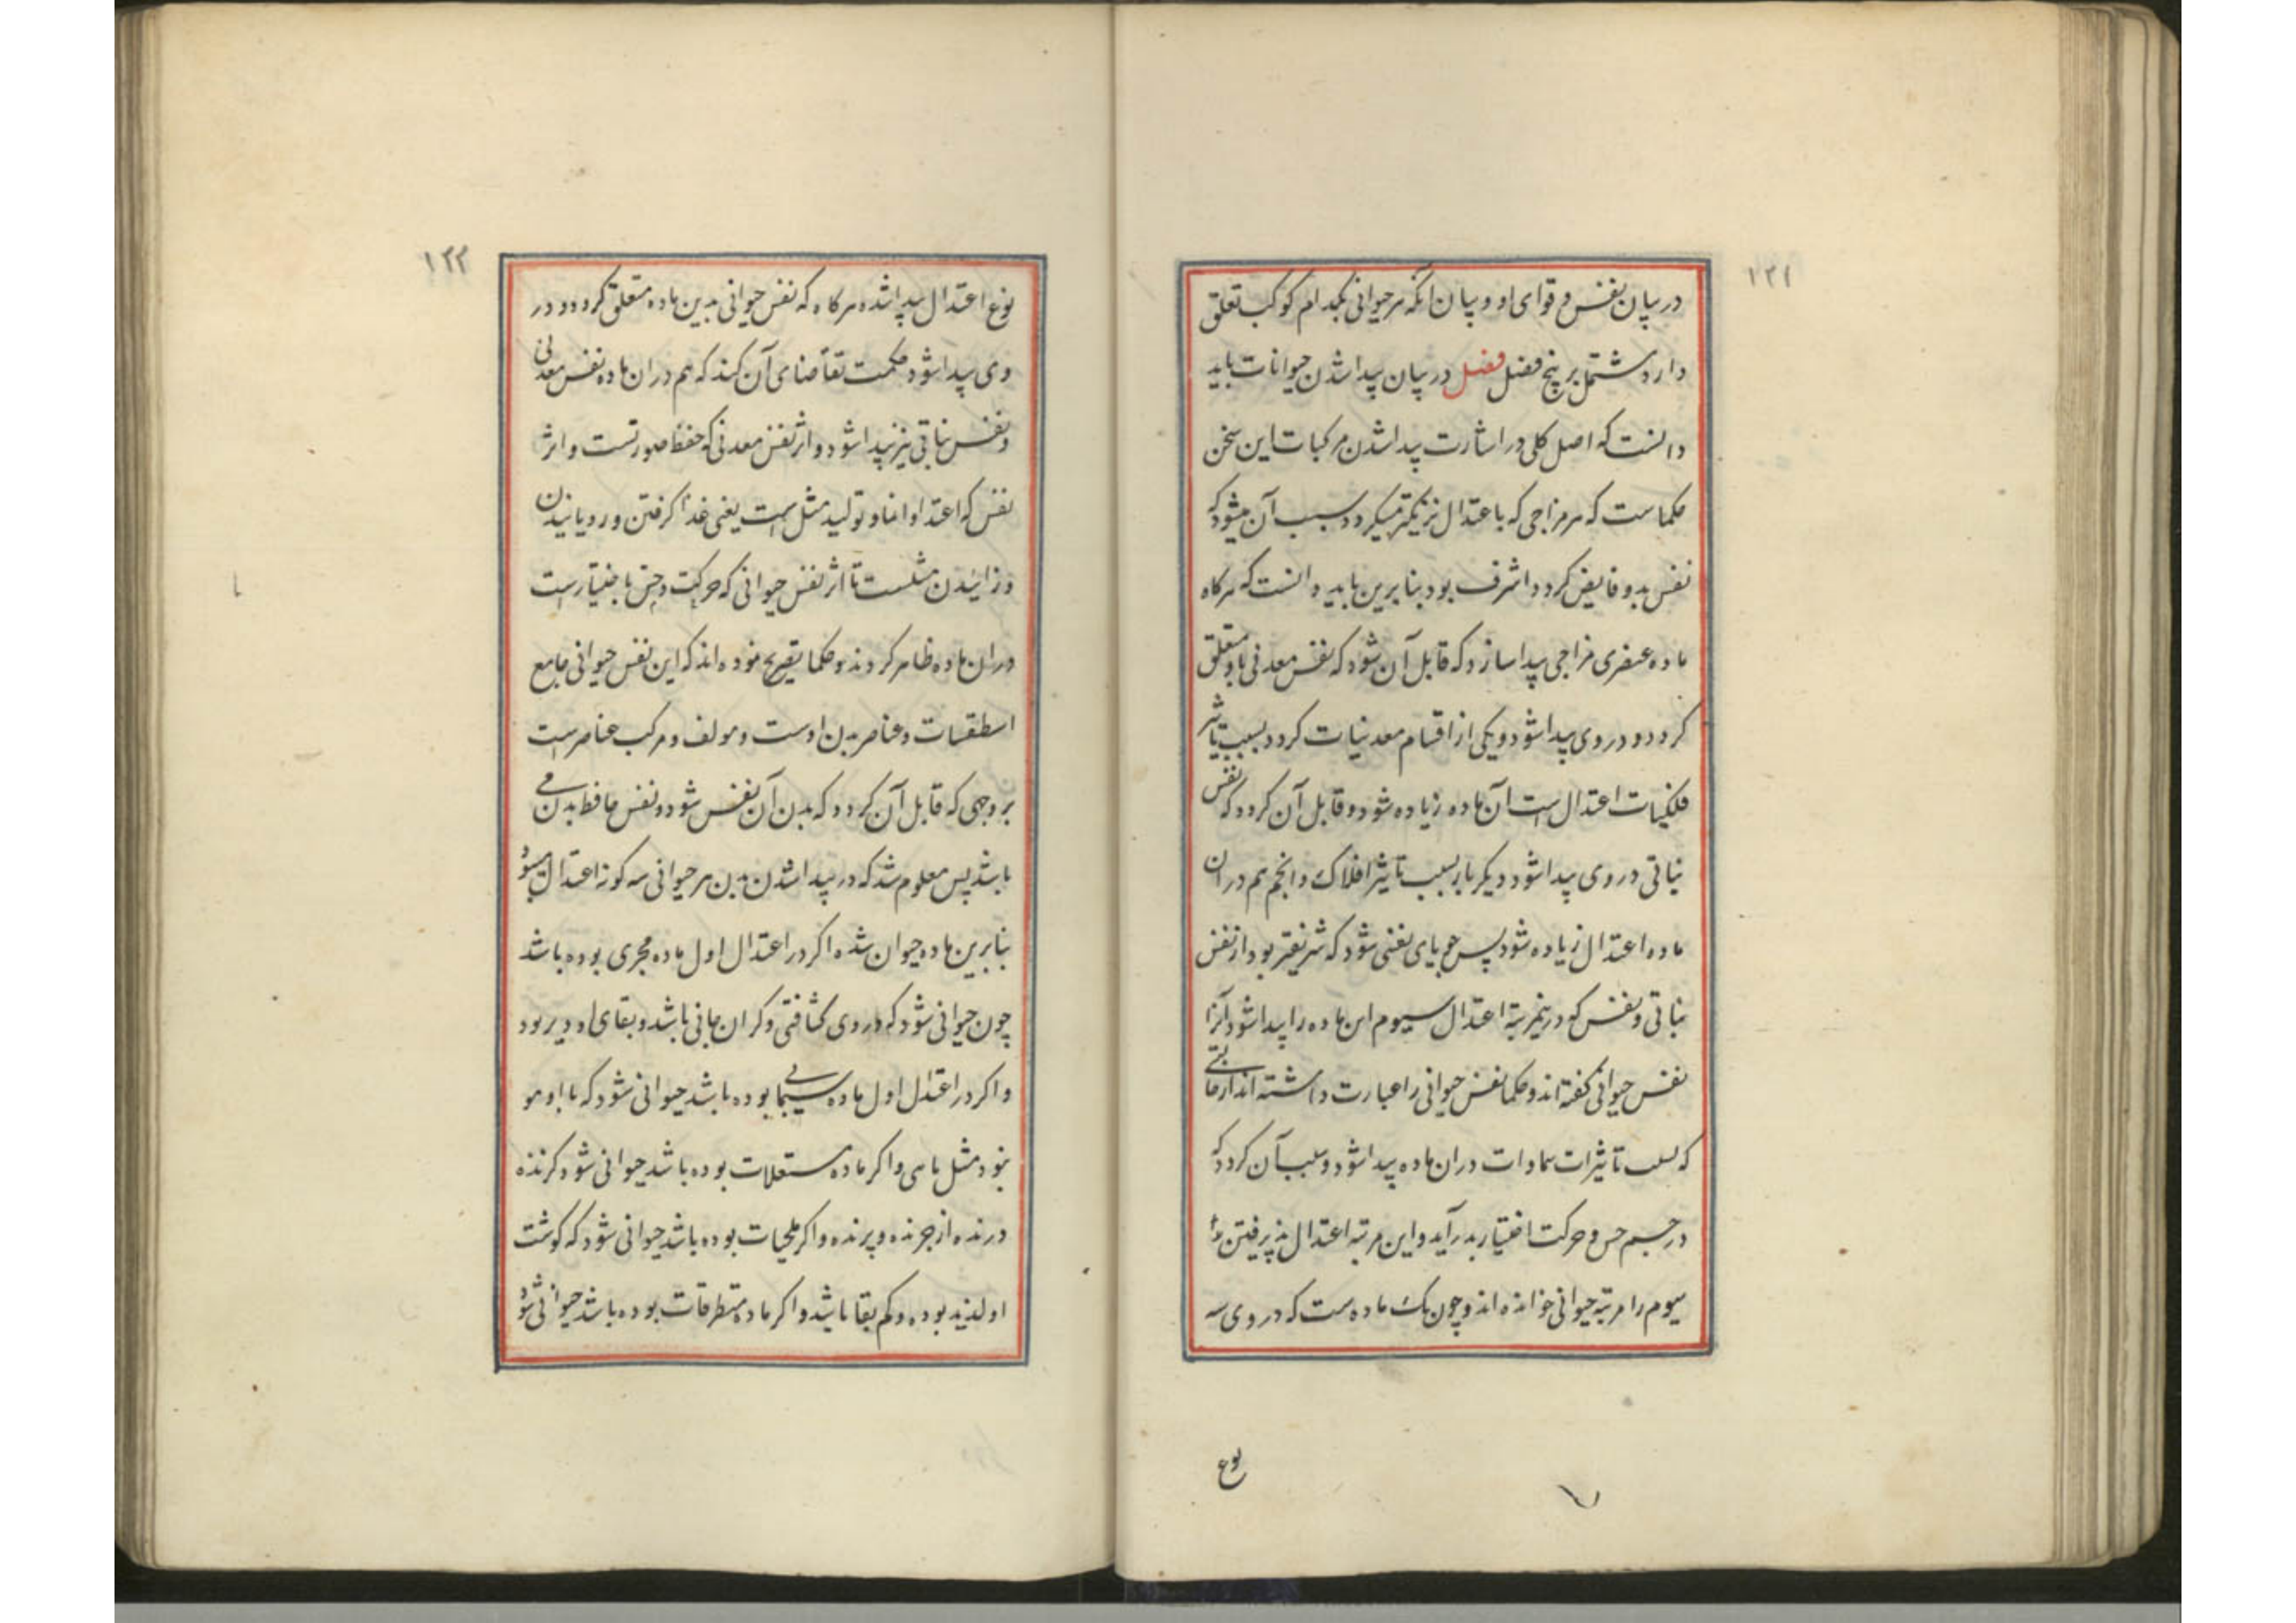 ۱۲۱
در بیان نفس و قوای او و بیان آنکه هر حیوانی بکدام کوکب تعلق
دارد مشتمل بر پنج فصل فصل در بیان پیدا شدن حیوانات باید
دانست که اصل کلی در اشارت پیدا شدن مرکبات این سخن
حکماست که هر مزاجی که باعتدال نزدیکتر میکردد سبب آن میشود که
نفس بدو فایض کردد اشرف بود بنابرین باید دانست که هرکاه
ماده عنصری مزاجی پیدا سازد که قابل آن شود که نفس معدنی باو متعلق
کردد و در وی پیدا شود و یکی از اقسام معدنیات کردد بسبب تاثیر
فلکیات اعتدال است آن ماده زیاده شود و قابل آن کردد که نفس
نباتی در وی پیدا شود و دیکر بار بسبب تاثیر افلاک و انجم هم در ان
ماده اعتدال زیاده شود پس جویای نفسی شود که شریفتر بود از نفس
نباتی و نفس که درینمرتبه اعتدال سیوم این ماده را پیدا شود آنرا
نفس حیوانی کفته اند و حکما نفس حیوانی را عبارت داشته اند از حالتی
که بسبب تاثیرات سماوات دران ماده پیدا شود و سبب آن کردد که
در جسم حس و حرکت اختیار بدر آید و این مرتبه اعتدال پذیرفتن
سیوم را مرتبه حیوانی خوانده اند و چون یک ماده ست که در وی سه
نوع
۱۲۲
نوع اعتدال پیدا شده هرکاه که نفس حیوانی بدین ماده متعلق کردد و در
وی پیدا شود حکمت تقاضای آن کند که هم دران ماده نفس معدنی
و نفس نباتی نیز پیدا شود و اثر نفس معدنی که حفظ صورتست و اثر
نفس که اغتذا و انما و تولید مثل است یعنی غذا کرفتن و رویانیدن
و زائیدن مثلست تا اثر نفس حیوانی که حرکت و حس باختیارست
دران ماده ظاهر کردند و حکما تصریح نموده اند که این نفس حیوانی جامع
اسطقسات و عناصر بدن اوست و مولف و مرکب عناصر است
بر وجهی که قابل آن کردد که بدن آن نفس شود و نفس حافظ بدن می
باشد پس معلوم شد که در پیدا شدن بدن هر حیوانی سه کونه اعتدال میشود
بنابرین ماده حیوان شده اکر در اعتدال اول ماده حجری بوده باشد
چون حیوانی شود که در وی کثافتی و کران جانی باشد و بقای او دیر بود
و اکر در اعتدال اول ماده سیمابی بوده باشد حیوانی شود که با او مو
نبود مثل ماهی و اکر ماده مستعلات بوده باشد حیوانی شود کزنده
درنده از چرنده و پرنده و اکر ملحیات بوده باشد حیوانی شود که کوشت
او لذیذ بوده و کم بقا باشد و اکر ماده متطرقات بوده باشد حیوانی شود